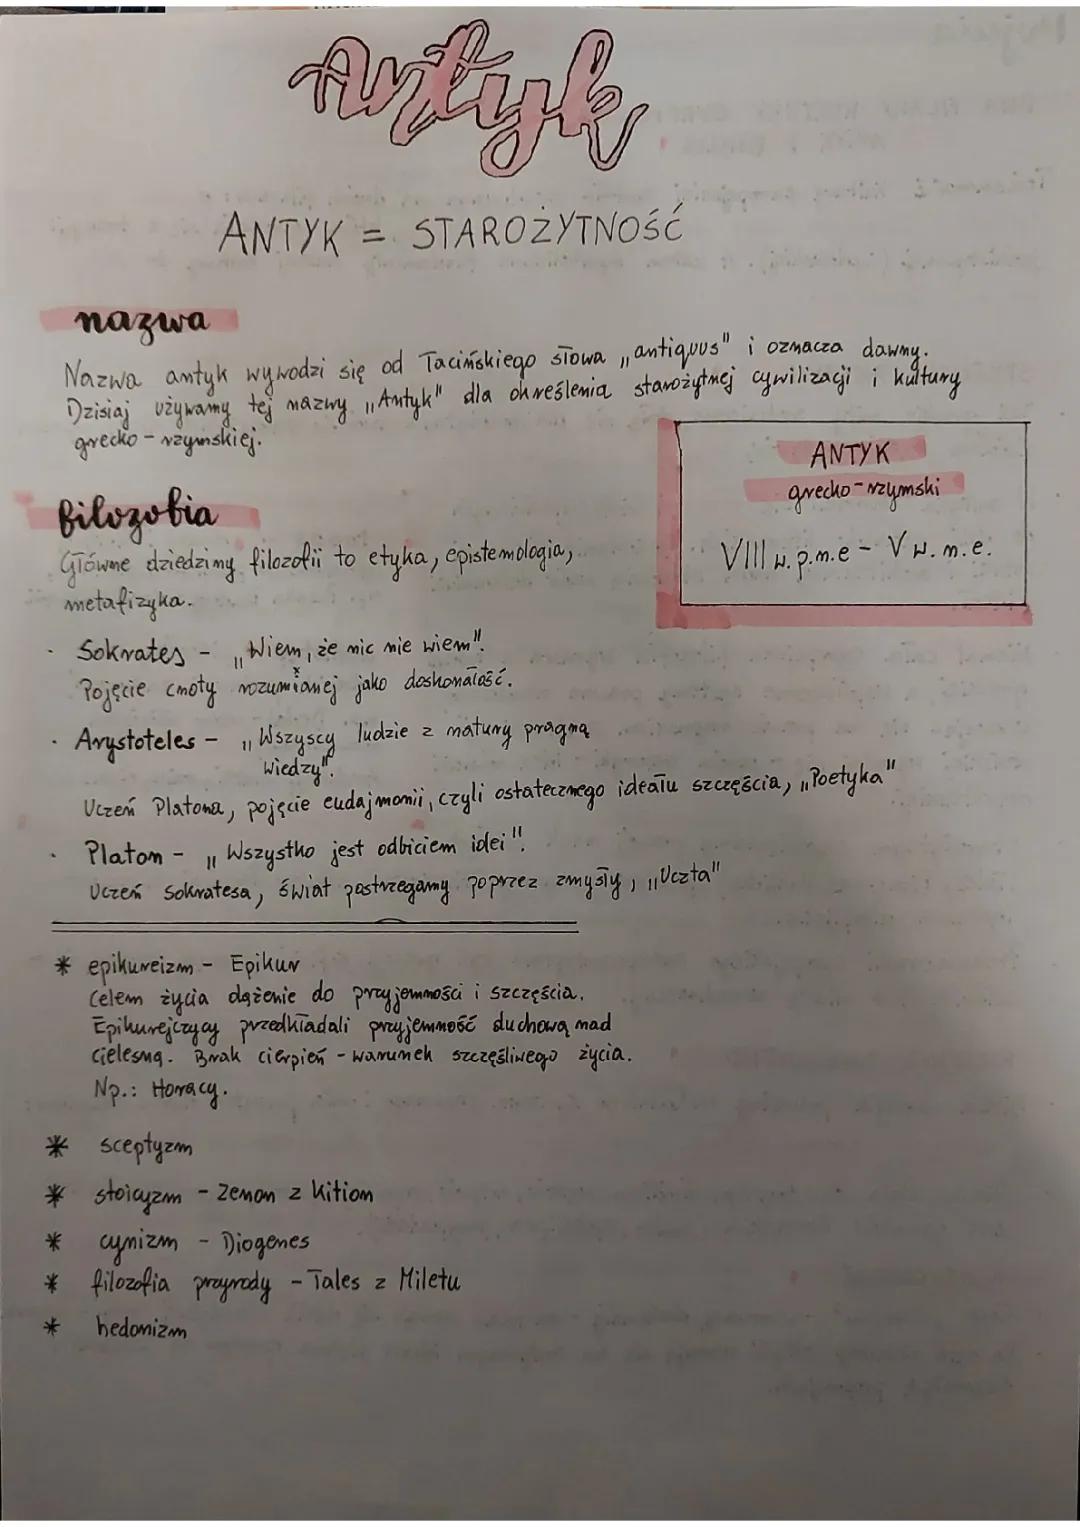 Antyk
ANTYK = STAROŻYTNOŚĆ
nazwa
Nazwa antyk wywodzi się od łacińskiego słowa „antiquus" i oznacza dawny.
Dzisiaj używamy tej nazwy „Antyk" dla określenia starożytnej cywilizacji i kultury
grecko - rzymskiej.
ANTYK
grecko - rzymski
VIII w. p.n.e - V w. n.e.
filozofia
Główne dziedziny filozofii to etyka, epistemologia,
metafizyka.
· Sokrates - „Wiem, że nic nie wiem".
Pojęcie cnoty rozumianej jako doskonałość.
· Arystoteles - „Wszyscy ludzie z natury pragną
wiedzy".
Uczeń Platona, pojęcie eudajmonii, czyli ostatecznego ideału szczęścia, „Poetyka"
· Platon - „Wszystko jest odbiciem idei".
Uczeń Sokratesa, świat postrzegamy poprzez zmysły, „Uczta"
* epikureizm - Epikur
Celem życia dążenie do przyjemności i szczęścia.
Epikurejczycy przedkładali przyjemność duchową nad
cielesną. Brak cierpień - warunek szczęśliwego życia.
Np.: Horacy.
* sceptyzm
* stoicyzm - Zenon z Kition
* cynizm - Diogenes
* filozofia przyrody - Tales z Miletu
* hedonizm